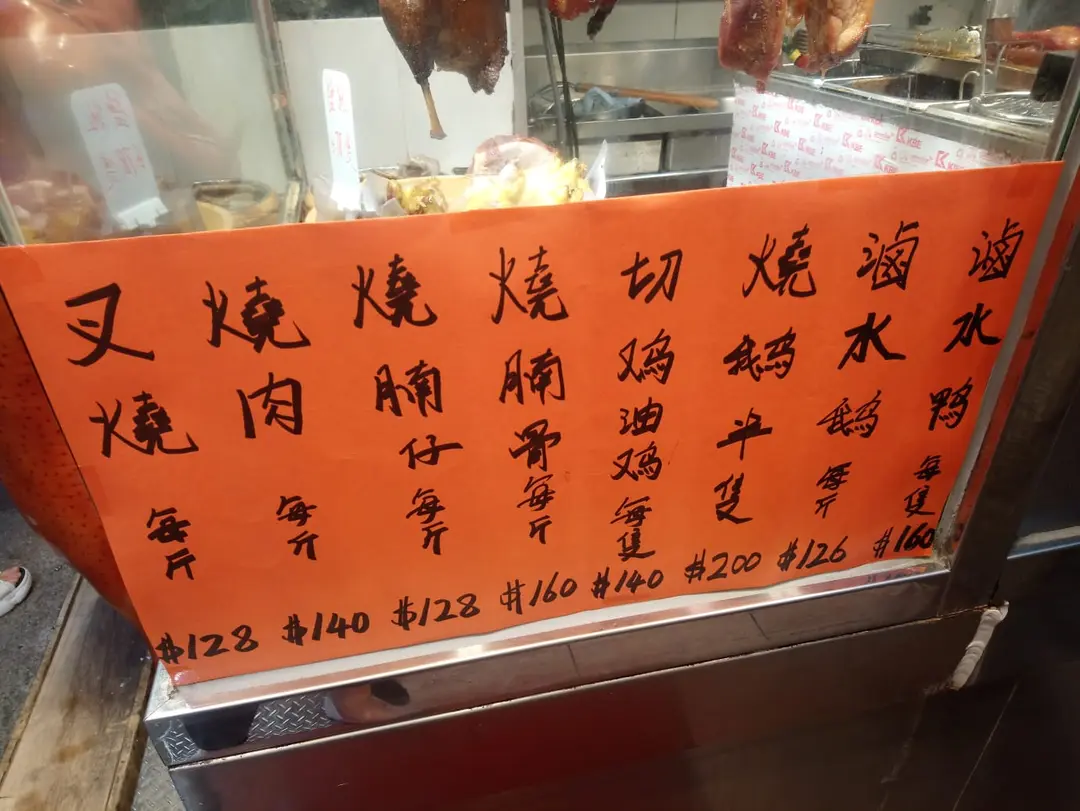 叉燒每斤$128
燒肉每斤$140
燒腩仔每斤$128
燒腩骨每斤$160
切鸡油鸡每隻$140
燒鹅半隻$200
滷水鹅每斤$126
滷水鴨每隻$160